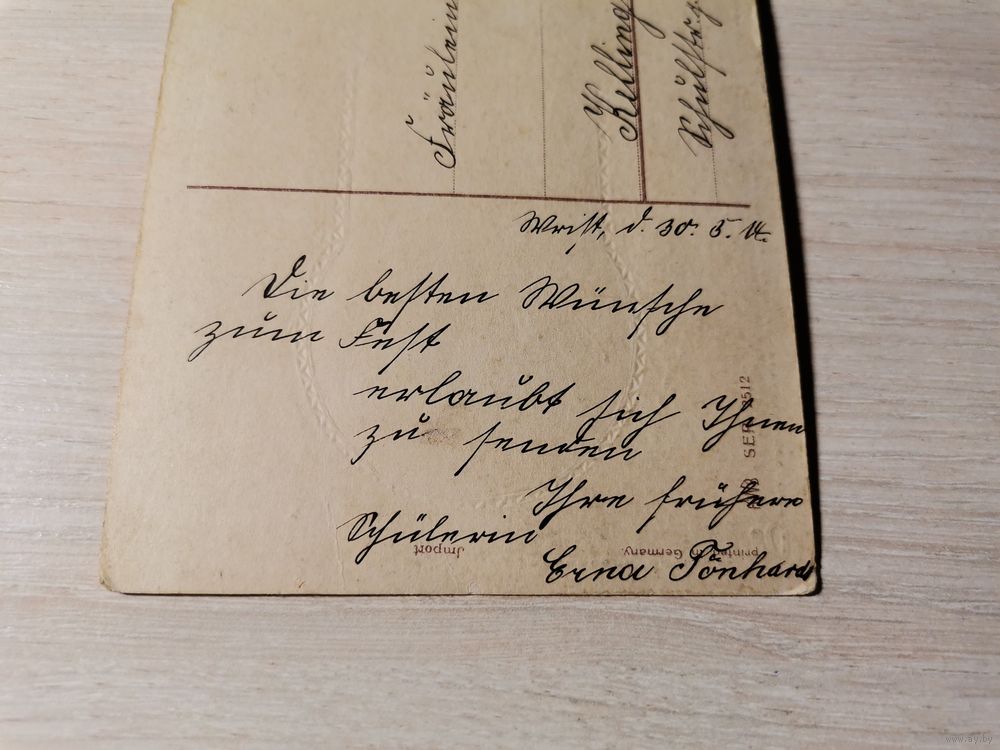 Fräulein
Kelling
Schulstr.
Wrist, d. 30. 5. 14.
Die besten Wünsche
zum Fest
erlaubt sich Ihnen
zu senden
Ihre frühere
Schülerin
Erna
SER 3512
Import
printed in Germany.
www.ay.by